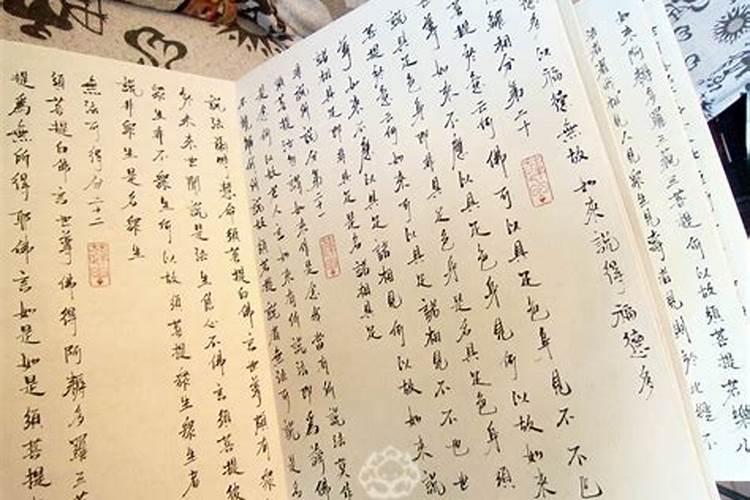 如来阿耨多羅三藐三菩提何以故須菩提若樂小
見人見眾生見壽者見則於此經不
以福德無故如來說得福德多
相分第二十
菩提於意云何佛可以具足色身見不不也
尊如來不應以具足色身見何以故如來
說具足色身即非具足色身是名具足色身須
菩提於意云何如來可以具足諸相見不不也世
尊如來不應以具足諸相見何以故如來說
諸相具足即非具足是名諸相具足
非說所說分第二十一
須菩提汝勿謂如來作是念我當有所說法莫作
是念何以故若人言如來有所說法即為謗佛
不能解我所說故須菩提說法者無法可說是名
說法爾時慧命須菩提白佛言世尊頗有眾
於未來世聞說是法生信心不佛言須菩提彼
眾生非不眾生何以故須菩提眾生眾生者
說非眾生是名眾生
無法可得分二十二
須菩提白佛言世尊佛得阿耨多羅三藐
提為無所得耶佛言如是如是須菩提